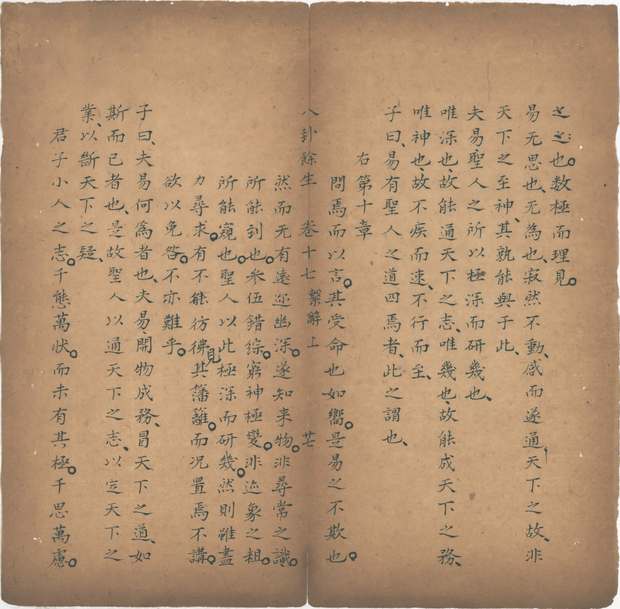 之之也數極而理見
易无思也无為也寂然不動感而遂通天下之故非
天下之至神其孰能與于此
夫易聖人之所以極深而研幾也
唯深也故能通天下之志唯幾也故能成天下之務
唯神也故不疾而速不行而至
子曰易有聖人之道四焉者此之謂也
右第十章
問焉而以言其受命也如嚮是易之不欺也
八卦餘生 卷十七 繫解上 芒
然而无有遠近幽深遂知来物非尋常之識
所能到也參伍錯綜窮神極變非迹象之粗
所能窺也聖人以此極深而研幾然則雖盡
力尋求有不能彷彿見其籓籬而况置焉不講
欲以免咎不亦難乎
子曰夫易何為者也夫易開物成務冒天下之道如
斯而已者也是故聖人以通天下之志以定天下之
業以斷天下之疑
君子小人之志千態萬狀而未有其極千思萬慮